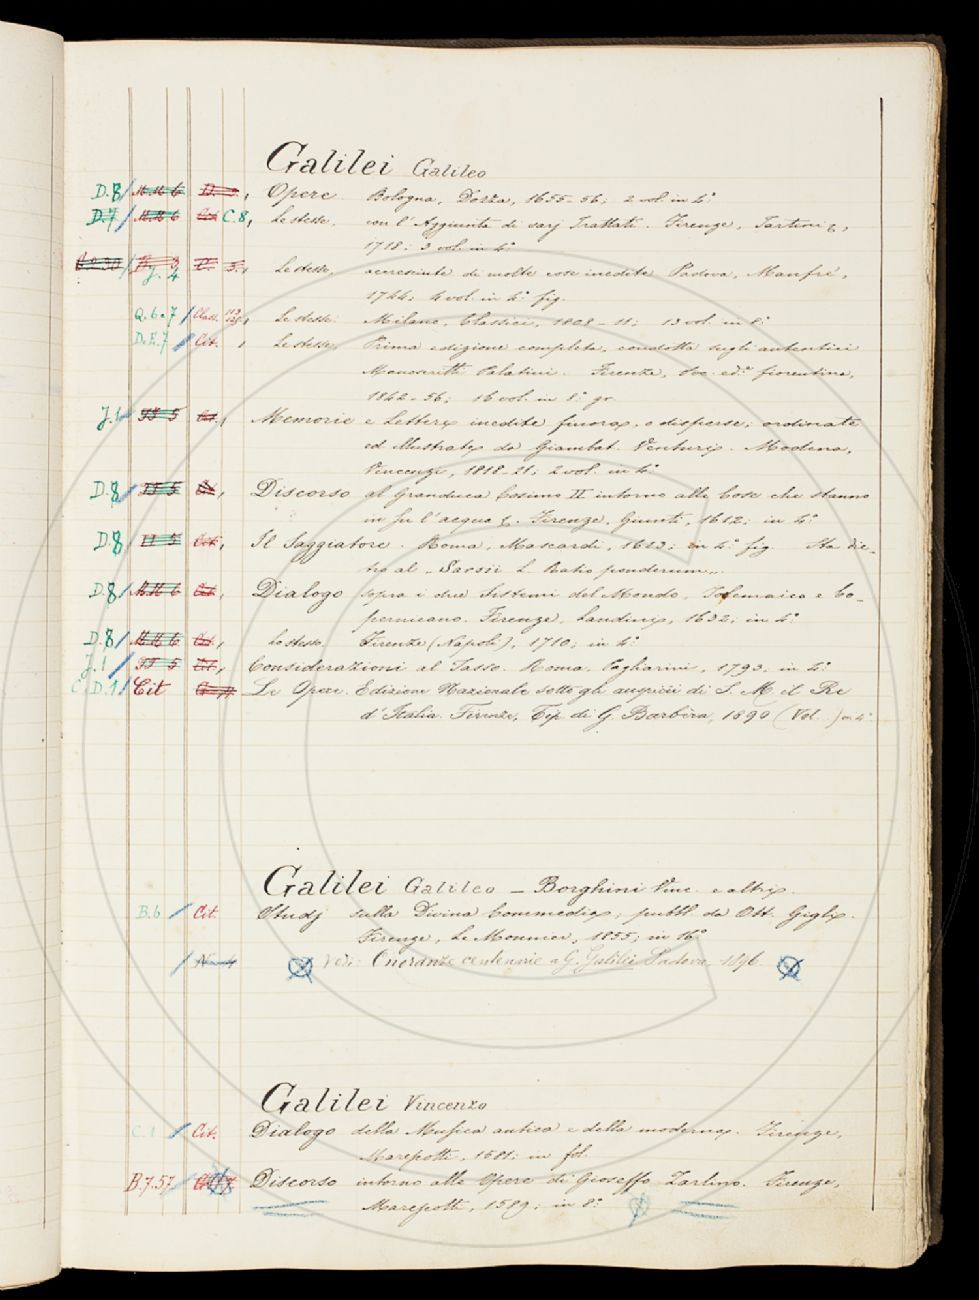 Galilei Galileo
D.8 Opere Bologna, Dozza, 1655-56; 2 vol. in 4.º
D.7 C.8, Le stesse, con l'Aggiunta di varj Trattati. Firenze, Tartini &,
1718; 3 vol. in 4.º
J. 4 Le stesse, accresciute di molte cose inedite Padova, Manfré,
1744; 4 vol. in 4.º fig.
Q.6.7 Class. Le stesse. Milano, Classici, 1808-11; 13 vol. in 8.º
D.E.7 Cit. Le stesse, Prima edizione completa, condotta sugli autentici
Manoscritti Palatini. Firenze, Soc. ed.ª fiorentina,
1842-56; 16 vol. in 8.º gr.
J.1 Memorie e Lettere inedite finora, o disperse; ordinate
ed illustrate da Giambat. Venturi. Modena,
Vincenzi, 1818-21; 2 vol. in 4.º
D.8 Discorso al Granduca Cosimo II intorno alle Cose che stanno
in su l'acqua &. Firenze, Giunti, 1612; in 4.º
D.8 Il Saggiatore. Roma, Mascardi, 1623; in 4.º fig. Sta die-
tro al "Sarsii L. Ratio ponderum".
D.8 Dialogo sopra i due Sistemi del Mondo, Tolemaico e Co-
pernicano. Firenze, Landini, 1632; in 4.º
D.8 Lo stesso. Firenze (Napoli), 1710; in 4.º
J.1 Considerazioni al Tasso. Roma, Pagliarini, 1793. in 4.º
C.D.1 Cit Le Opere. Edizione Nazionale sotto gli auspicii di S. M. il Re
d'Italia. Firenze, Tip. di G. Barbèra, 1890 (Vol. ) in 4.º
Galilei Galileo – Borghini Vinc. e altri.
B.6 Cit. Studj sulla Divina Commedia; pubbl. da Ott. Gigli.
Firenze, Le Monnier, 1855; in 16º
Vedi: Onoranze centenarie a G. Galilei Padova 1896
Galilei Vincenzo
C.1 Cit. Dialogo della Musica antica e della moderna. Firenze,
Marescotti, 1581; in fol.
B.7.57 Discorso intorno alle Opere di Gioseffo Zarlino. Firenze,
Marescotti, 1589; in 8.º